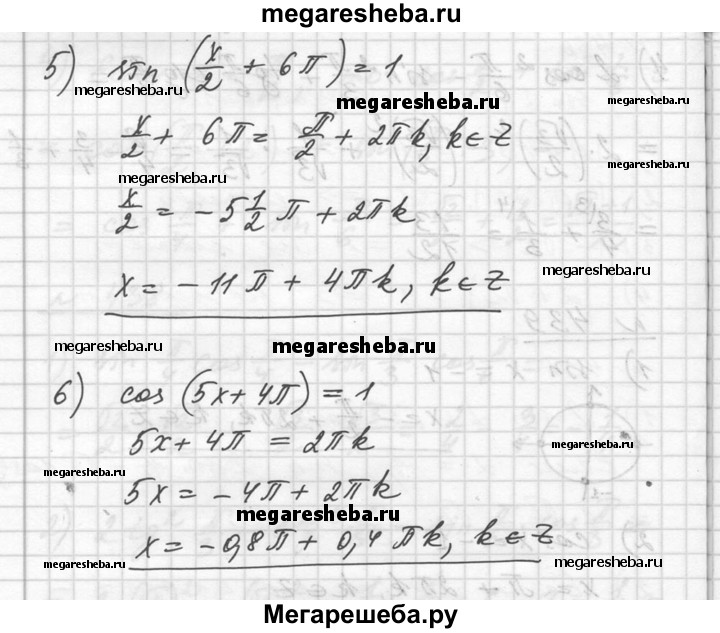 megaresheba.ru
5) sin (x/2 + 6π) = 1
megaresheba.ru
megaresheba.ru
megaresheba.ru
x/2 + 6π = π/2 + 2πk, k∈Z
megaresheba.ru
megaresheba.ru
x/2 = -5 1/2 π + 2πk
megaresheba.ru
x = -11π + 4πk, k∈Z
megaresheba.ru
megaresheba.ru
megaresheba.ru
6) cos (5x+4π) = 1
5x+4π = 2πk
megaresheba.ru
megaresheba.ru
5x = -4π + 2πk
megaresheba.ru
x = -0,8π + 0,4πk, k∈Z
megaresheba.ru
megaresheba.ru
Мегарешеба.ру